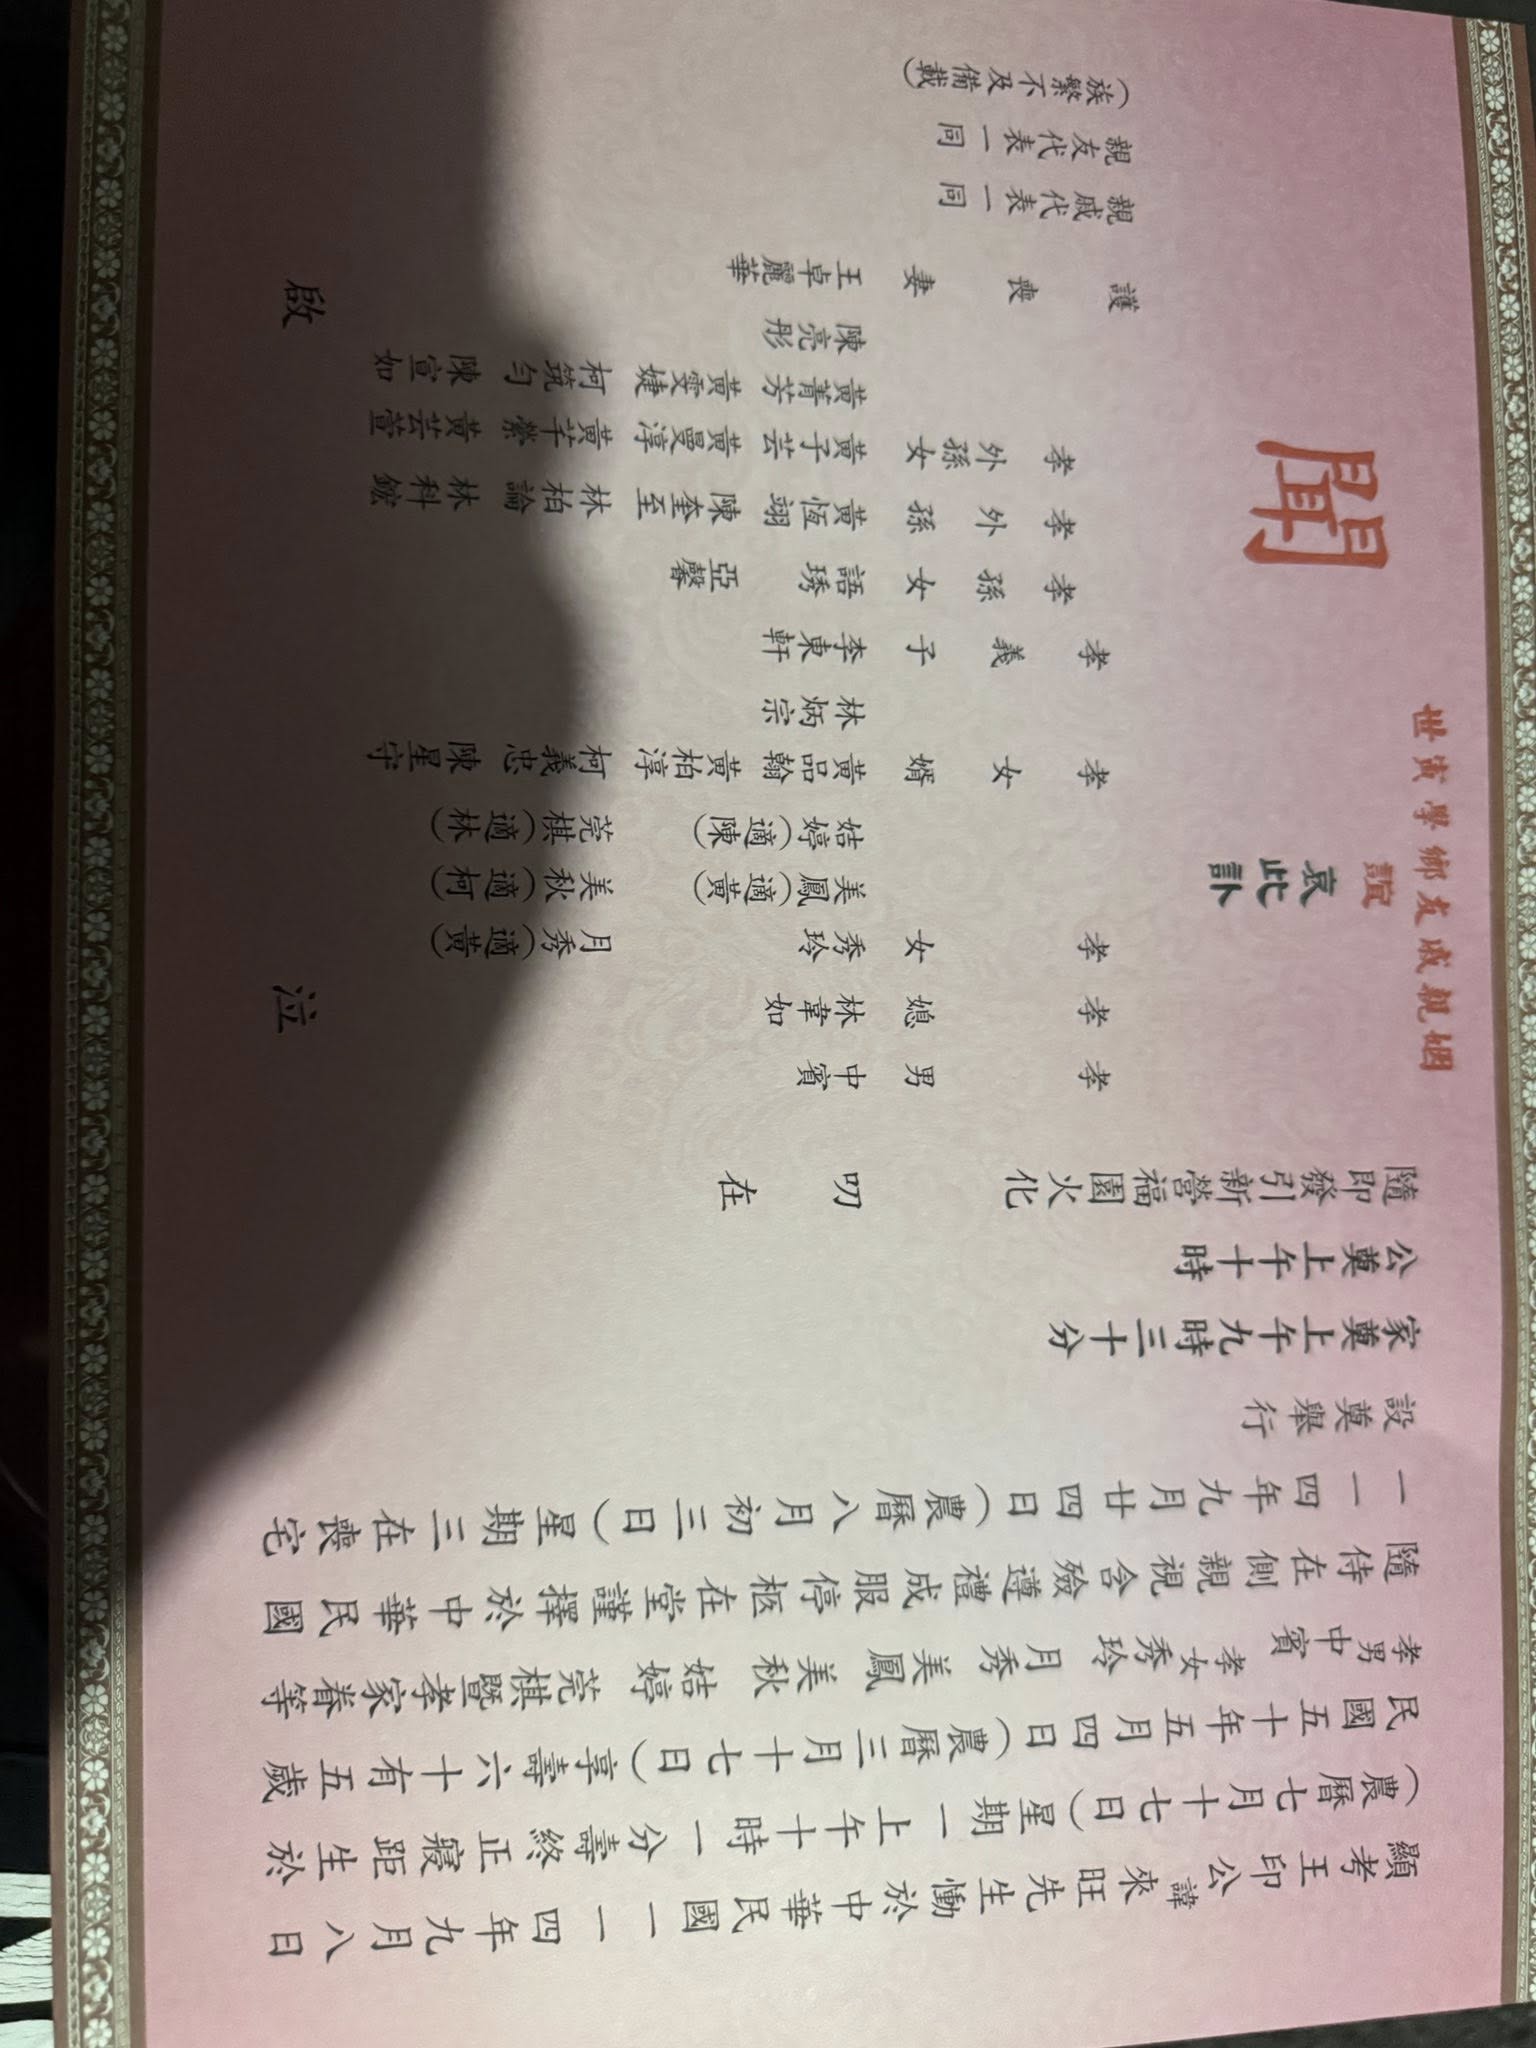 顯考王印公諱來旺先生慟於中華民國一一四年九月八日
(農曆七月十七日)星期一上午十時一分壽終正寢距生於
民國五十年五月四日(農曆三月十七日)享壽六十有五歲
孝男中賓 孝女秀玲 月秀 美鳳 美秋 姞婷 莞棋暨孝家眷等
隨侍在側親視含殮遵禮成服停柩在堂謹擇於中華民國
一一四年九月廿四日(農曆八月初三日)星期三在喪宅
設奠舉行
家奠上午九時三十分
公奠上午十時
隨即發引新營福園火化
叨在
姻親戚友鄉學寅世
誼
哀此訃
聞
孝男 中賓
孝媳 林韋如
孝女 秀玲 月秀(適黃)
美鳳(適黃) 美秋(適柯)
姞婷(適陳) 莞棋(適林)
孝女婿 黃品翰 黃柏淳 柯義忠 陳星守
林炳宗
孝義子 李東軒
孝孫女 語琇 亞馨
孝外孫 黃恆翊 陳奎至 林柏諭 林科鋐
孝外孫女 黃子芸 黃曼淳 黃芊縈 黃芸萱
黃菁芳 黃雯婕 柯筑勻 陳宣如
陳亮彤
護喪妻 王卓麗華
親戚代表一同
親友代表一同
(族繁不及備載)
泣
啟